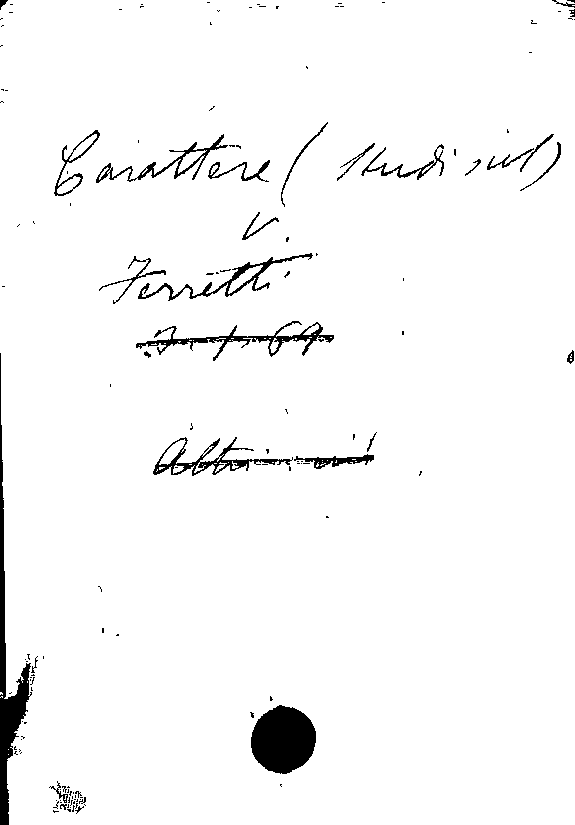 Carattere (Studi sul)
V.
Ferretti
3. 1. 69